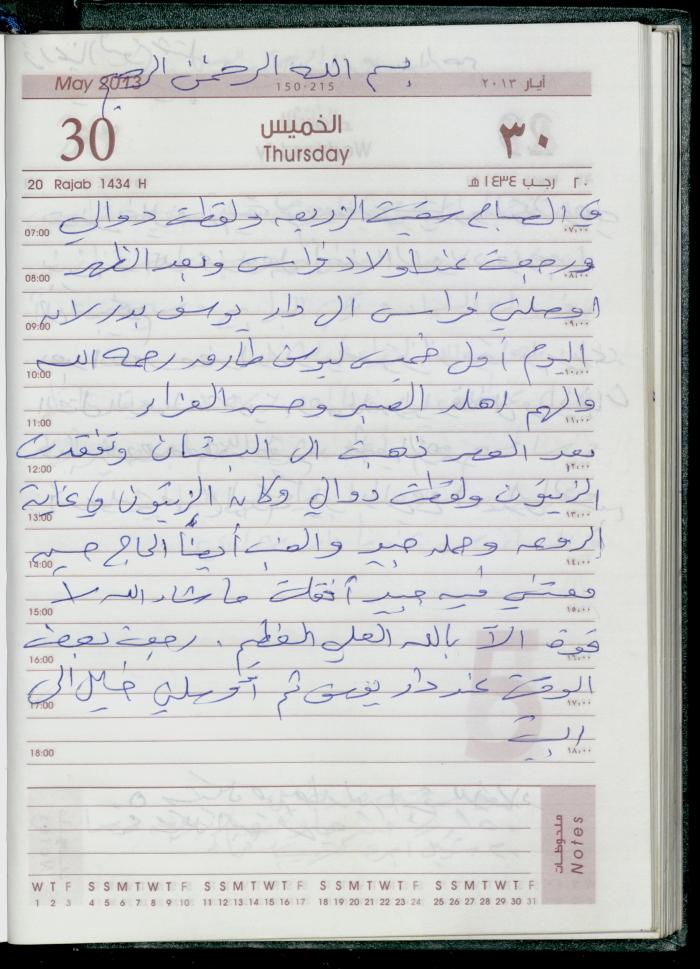 بسم الله الرحمن الرحيم
May 2013 150-215 أيار ٢٠١٣
30 الخميس ٣٠
Thursday
20 Rajab 1434 H ٢٠ رجب ١٤٣٤ هـ
في الصباح سقيت الزريعه ولقطت دوالي
07:00 ٠٧:٠٠
ورجعت عند اولاد فراس وبعد الظهر
08:00 ٠٨:٠٠
اوصلني فراس ال دار يوسف بدر لانه
09:00 ٠٩:٠٠
اليوم أول خميس ليوسف طارق رحمه الله
10:00 ١٠:٠٠
والهم اهله الصبر وحسن العزاء
11:00 ١١:٠٠
بعد العصر ذهبت ال البستان وتفقدت
12:00 ١٢:٠٠
الزيتون ولقطت دوالي وكان الزيتون في غاية
13:00 ١٣:٠٠
الروعه وحمله جيد والعنب أيضاً الحاج حسين
14:00 ١٤:٠٠
معتني فيه جيد ما شاء الله لا
15:00 ١٥:٠٠
قوة الا بالله العلي العظيم . رجعت بعض
16:00 ١٦:٠٠
الوقت عند دار ثم خليل الى
17:00 ١٧:٠٠
البيت
18:00 ١٨:٠٠
ملحوظات
Notes
W T F S S M T W T F S S M T W T F S S M T W T F S S M T W T F
1 2 3 4 5 6 7 8 9 10 11 12 13 14 15 16 17 18 19 20 21 22 23 24 25 26 27 28 29 30 31